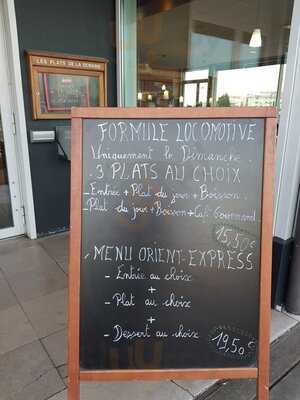 LES PLATS DE LA SEMAINE
FORMULE LOCOMOTIVE
Uniquement le Dimanche
3 PLATS AU CHOIX
- Entrée + Plat du jour + Boisson
- Plat du jour + Boisson + Café Gourmand
15,50€
MENU ORIENT-EXPRESS
- Entrée au choix
+
- Plat au choix
+
- Dessert au choix
19,50€